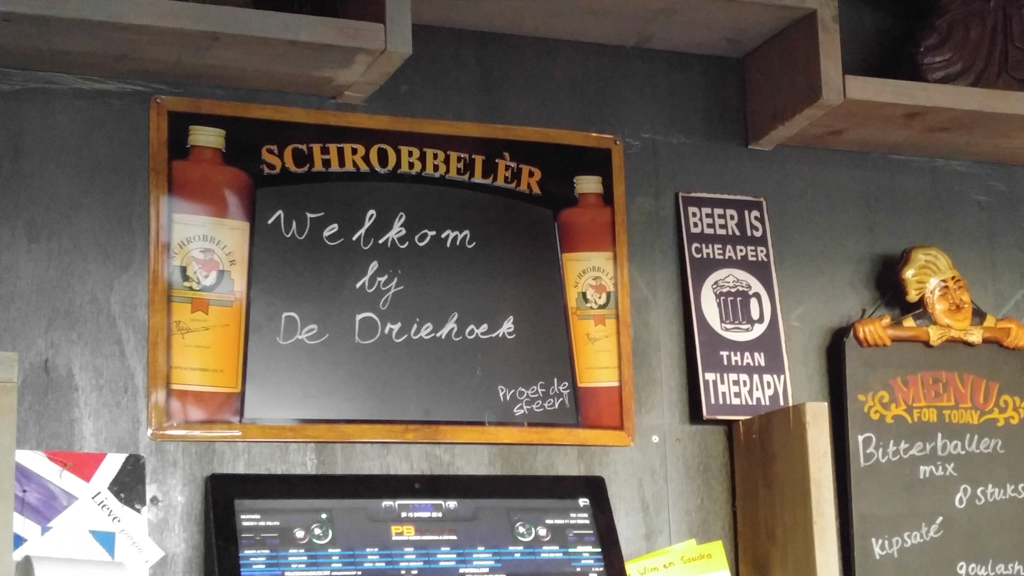 SCHROBBELÈR
Welkom
bij
De Driehoek
Proef de
sfeer!
SCHROBBELÈR
SCHROBBELÈR
BEER IS
CHEAPER
THAN
THERAPY
MENU
FOR TODAY
Bitterballen
mix
8 stuks
kipsaté
goulash
Lieve
PB
Wim en Saudra